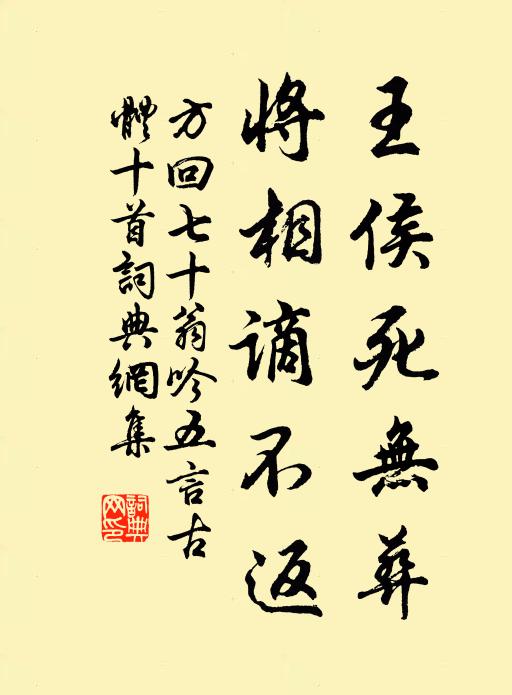 王侯死無葬
將相謫不返
方回七十翁吟五言古
體十首詞典網集
詞典
网印